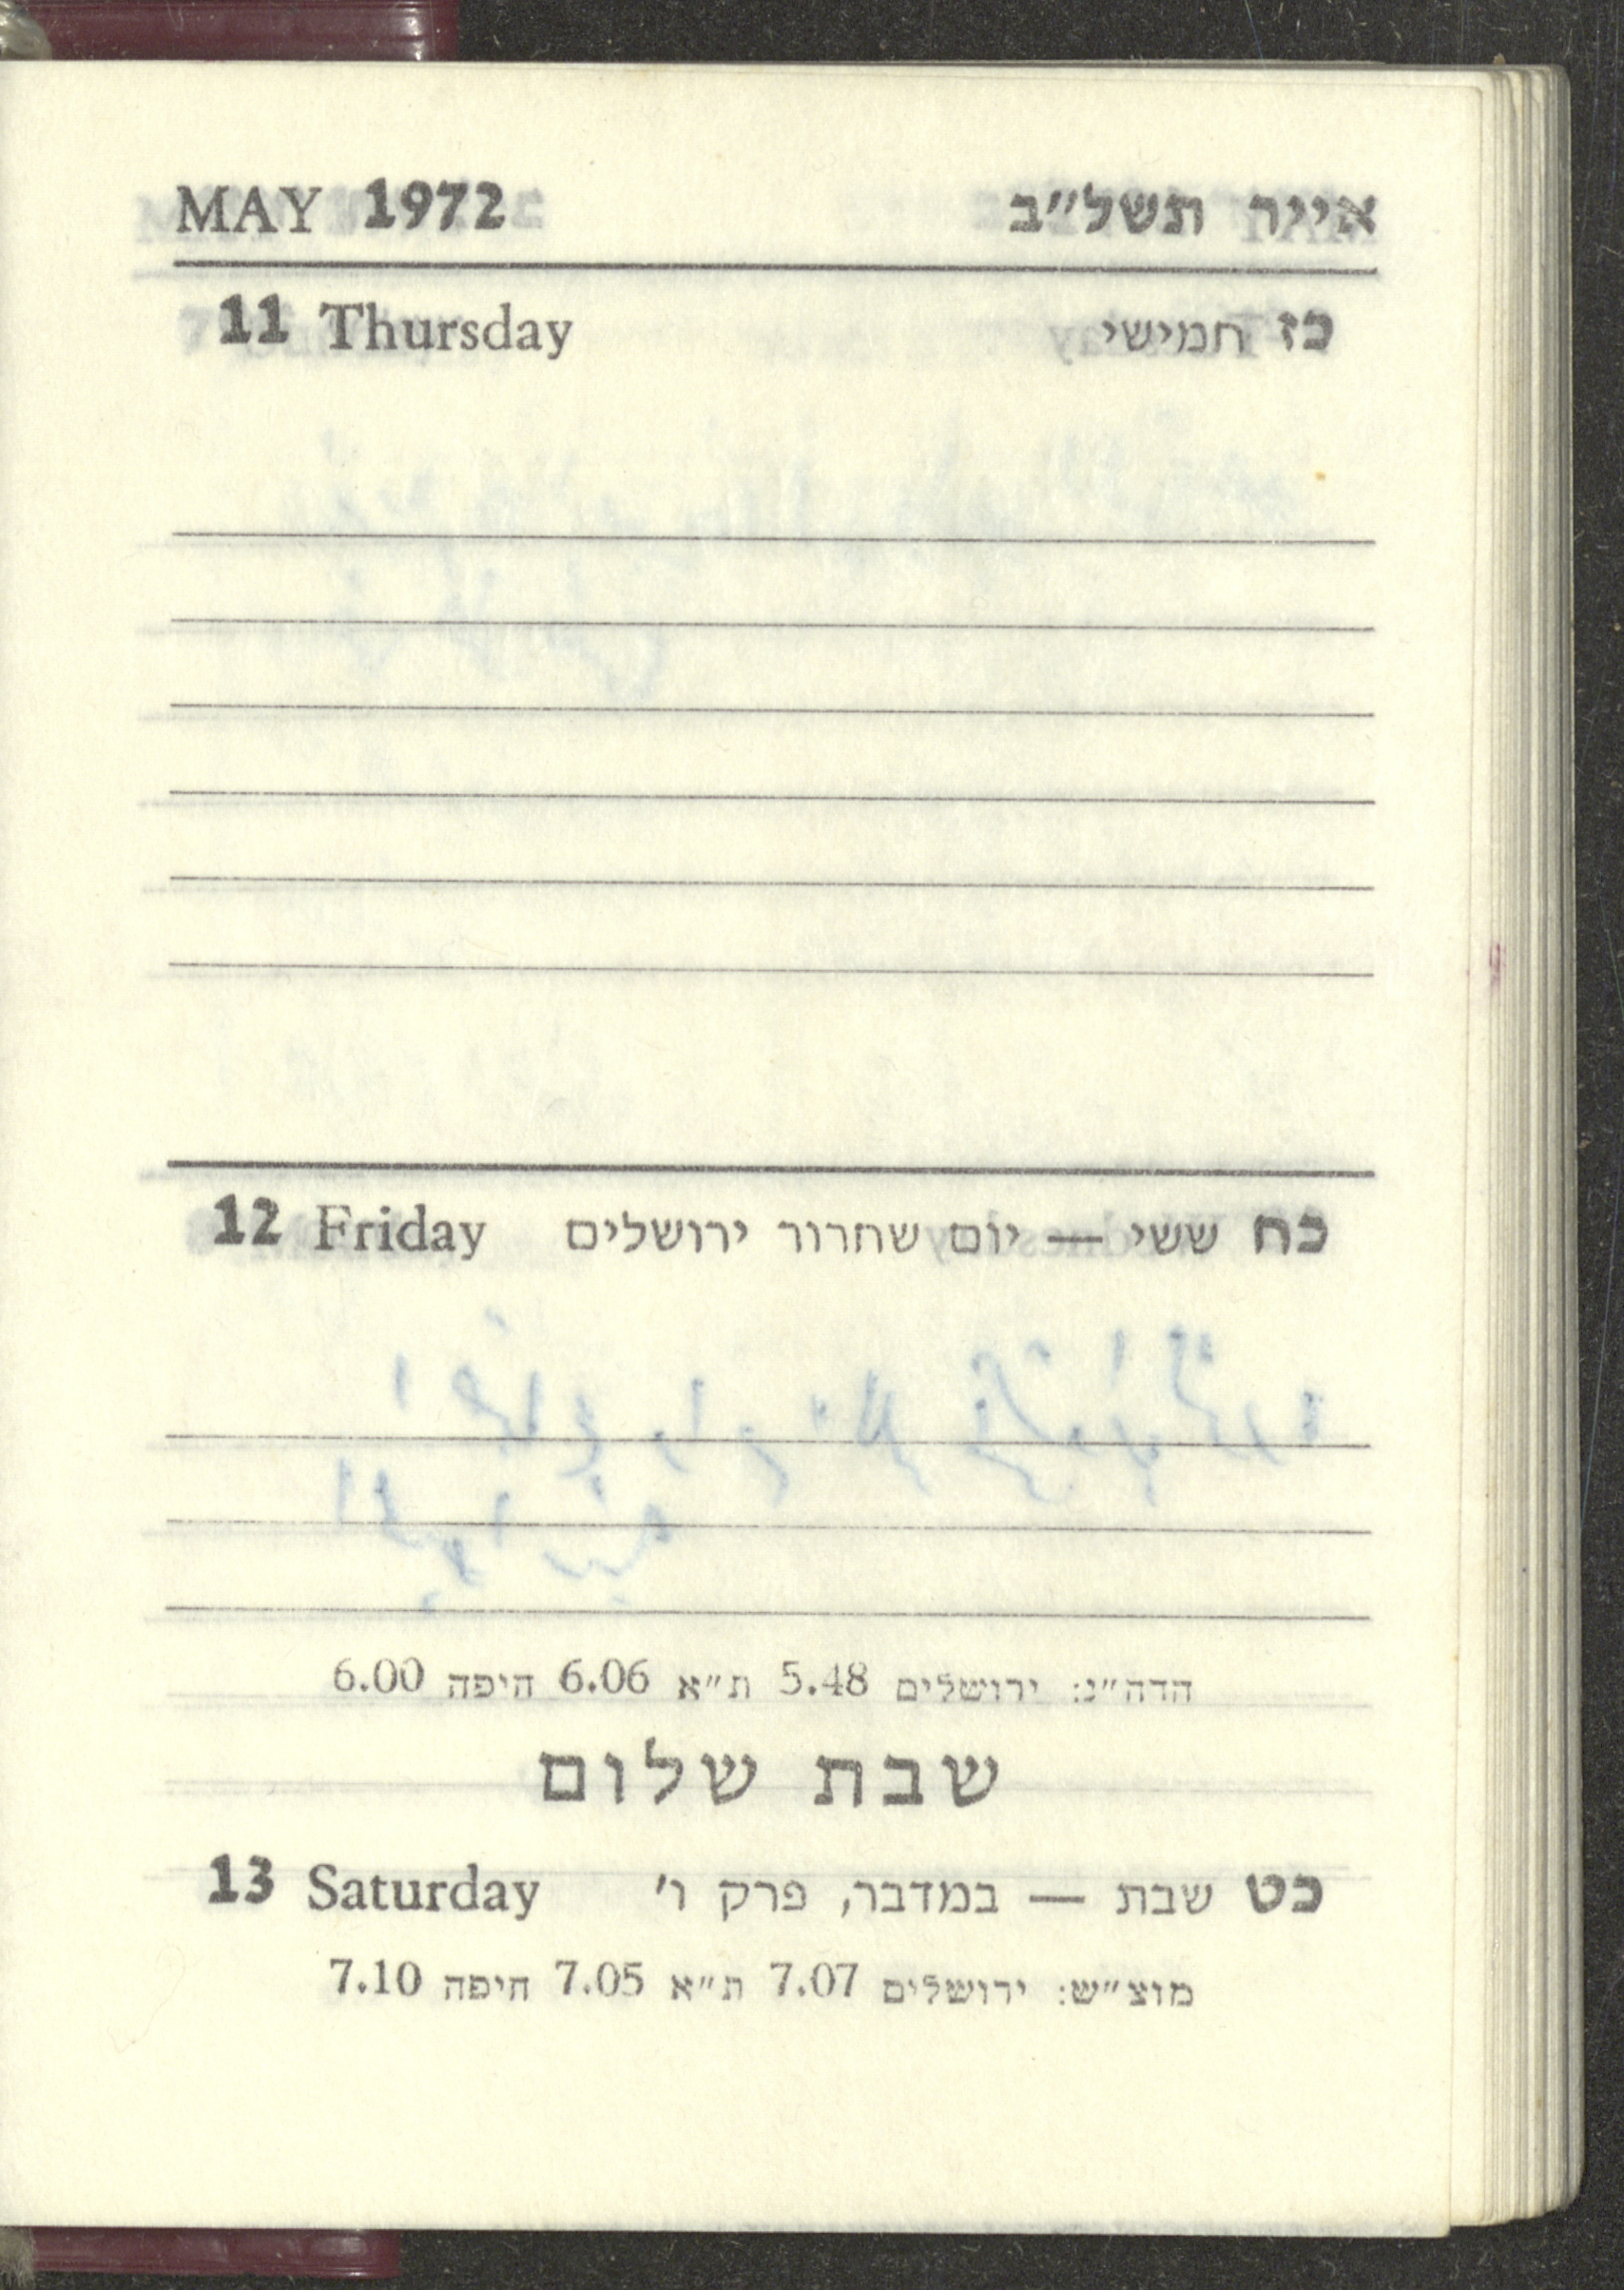 MAY 1972 אייר תשל״ב
11 Thursday כז חמישי
12 Friday כח ששי — יום שחרור ירושלים
הדה״נ: ירושלים 5.48 ת״א 6.06 חיפה 6.00
שבת שלום
13 Saturday כט שבת — במדבר, פרק ו׳
מוצ״ש: ירושלים 7.07 ת״א 7.05 חיפה 7.10